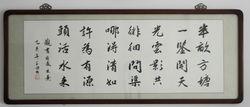 半畝方塘
一鑒開天
光雲影共
徘徊問渠
哪得清如
許為有源
頭活水來
觀書有感